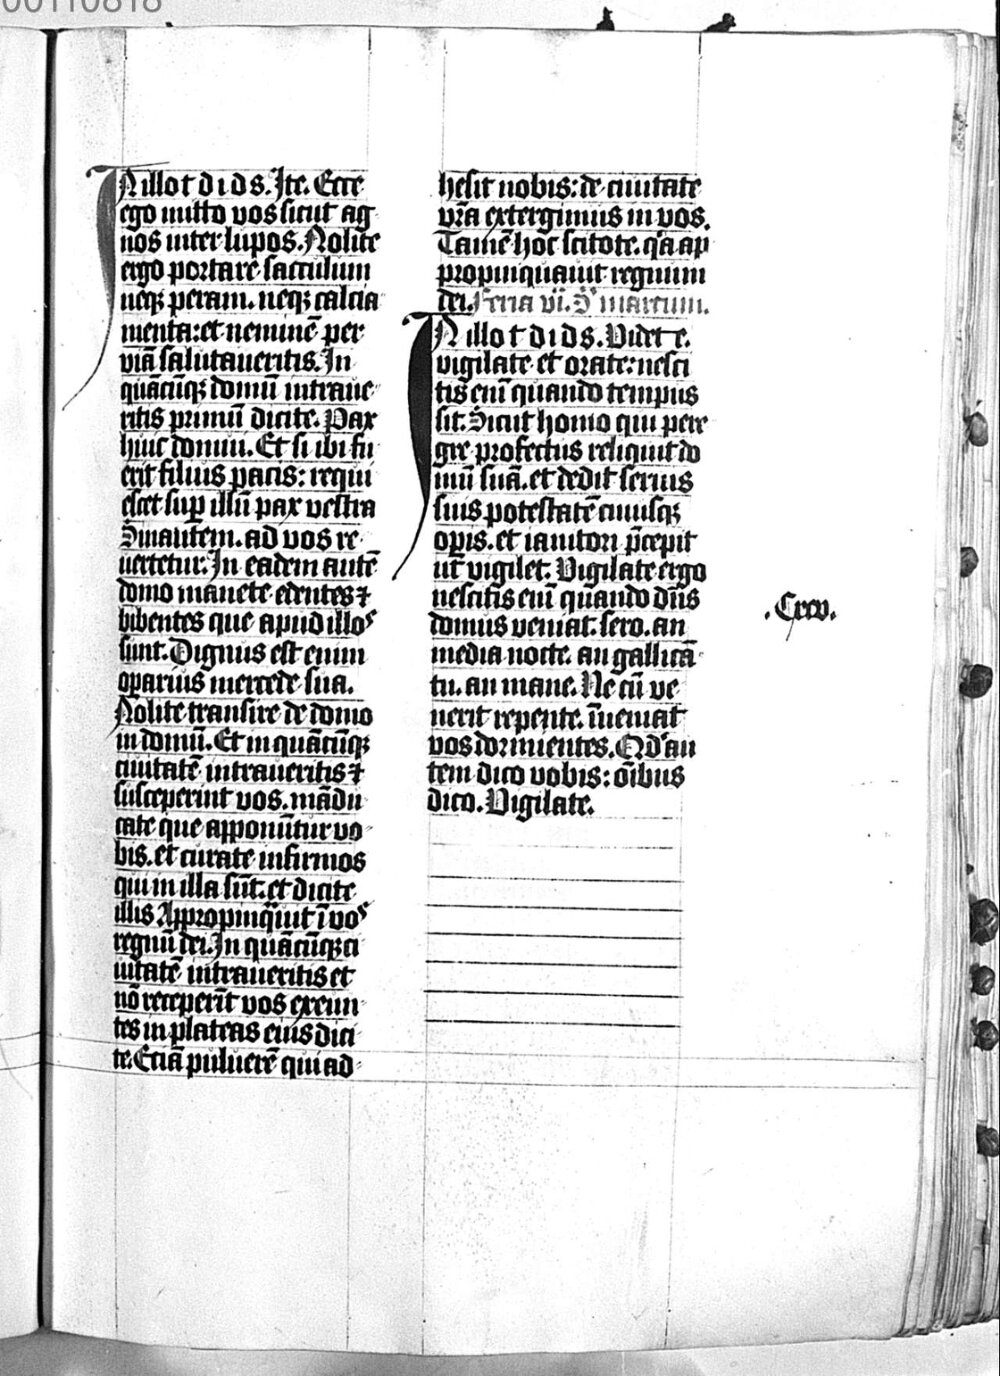 00110818
IN illo t̄ d i d s. Ite. Ecce
ego mitto vos sicut ag
nos inter lupos. Nolite
ergo portare sacculum
neqꝫ peram. neqꝫ calcia
menta: et neminē per
viā salutaveritis. In
quācūqꝫ domū intraue
ritis primū dicite. Pax
huic domui. Et si ibi fu
erit filius pacis: requi
escet sup illū pax vestra
Sinautem. ad vos re
uertetur. In eadem autē
domo manete edentes ⁊
bibentes que apud illos
sunt. Dignus est enim
oparius mercede sua.
Nolite transire de domo
in domū. Et in quācūqꝫ
ciuitatē intraueritis ⁊
susceperint vos. mādu
cate que apponūtur vo
bis. et curate infirmos
qui in illa sūt. et dicite
illis Appropinq̄uit ī vos
regnū dei. In quācūqꝫ ci
uitatē intraueritis et
nō receperīt vos exeun
tes in plateas eius dici
te. Etiā puluerē qui ad
hesit nobis: de ciuitate
vr̄a extergimus in vos.
Tamē hoc scitote. q̄a ap
propinquauit regnum
dei. Feria vi. S̄ marcum.
IN illo t̄ d i d s. Videte.
vigilate et orate: nesci
tis eni quando tempus
sit. Sicut homo qui pere
gre profectus reliquit do
mū suā. et dedit seruis
suis potestatē cuiusqꝫ
opis. et ianitori p̄cepit
ut vigilet. Vigilate ergo
nescitis eni quando dn̄s
domus veniat. sero. an
media nocte. an gallicā
tu. an mane. Ne cū ve
nerit repente. īueniat
vos dormientes. Qd̄ au
tem dico vobis: oībus
dico. Vigilate.
.Cxcv.